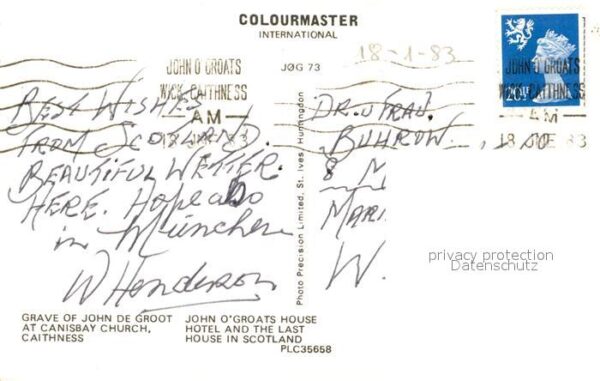 COLOURMASTER
INTERNATIONAL
JØG 73
18-1-83
JOHN O'GROATS
WICK, CAITHNESS
AM
83
JOHN O'GROATS
WICK, CAITHNESS
AM
18 83
BEST WISHES
FROM SCOTLAND.
BEAUTIFUL WETTER.
HERE. Hope also
in München
W Henderson
DR. U FRAU.
BUHROW.
8 M
MARI
W.
Photo Precision Limited, St. Ives, Huntingdon
privacy protection
Datenschutz
GRAVE OF JOHN DE GROOT
AT CANISBAY CHURCH,
CAITHNESS
JOHN O'GROATS HOUSE
HOTEL AND THE LAST
HOUSE IN SCOTLAND
PLC35658